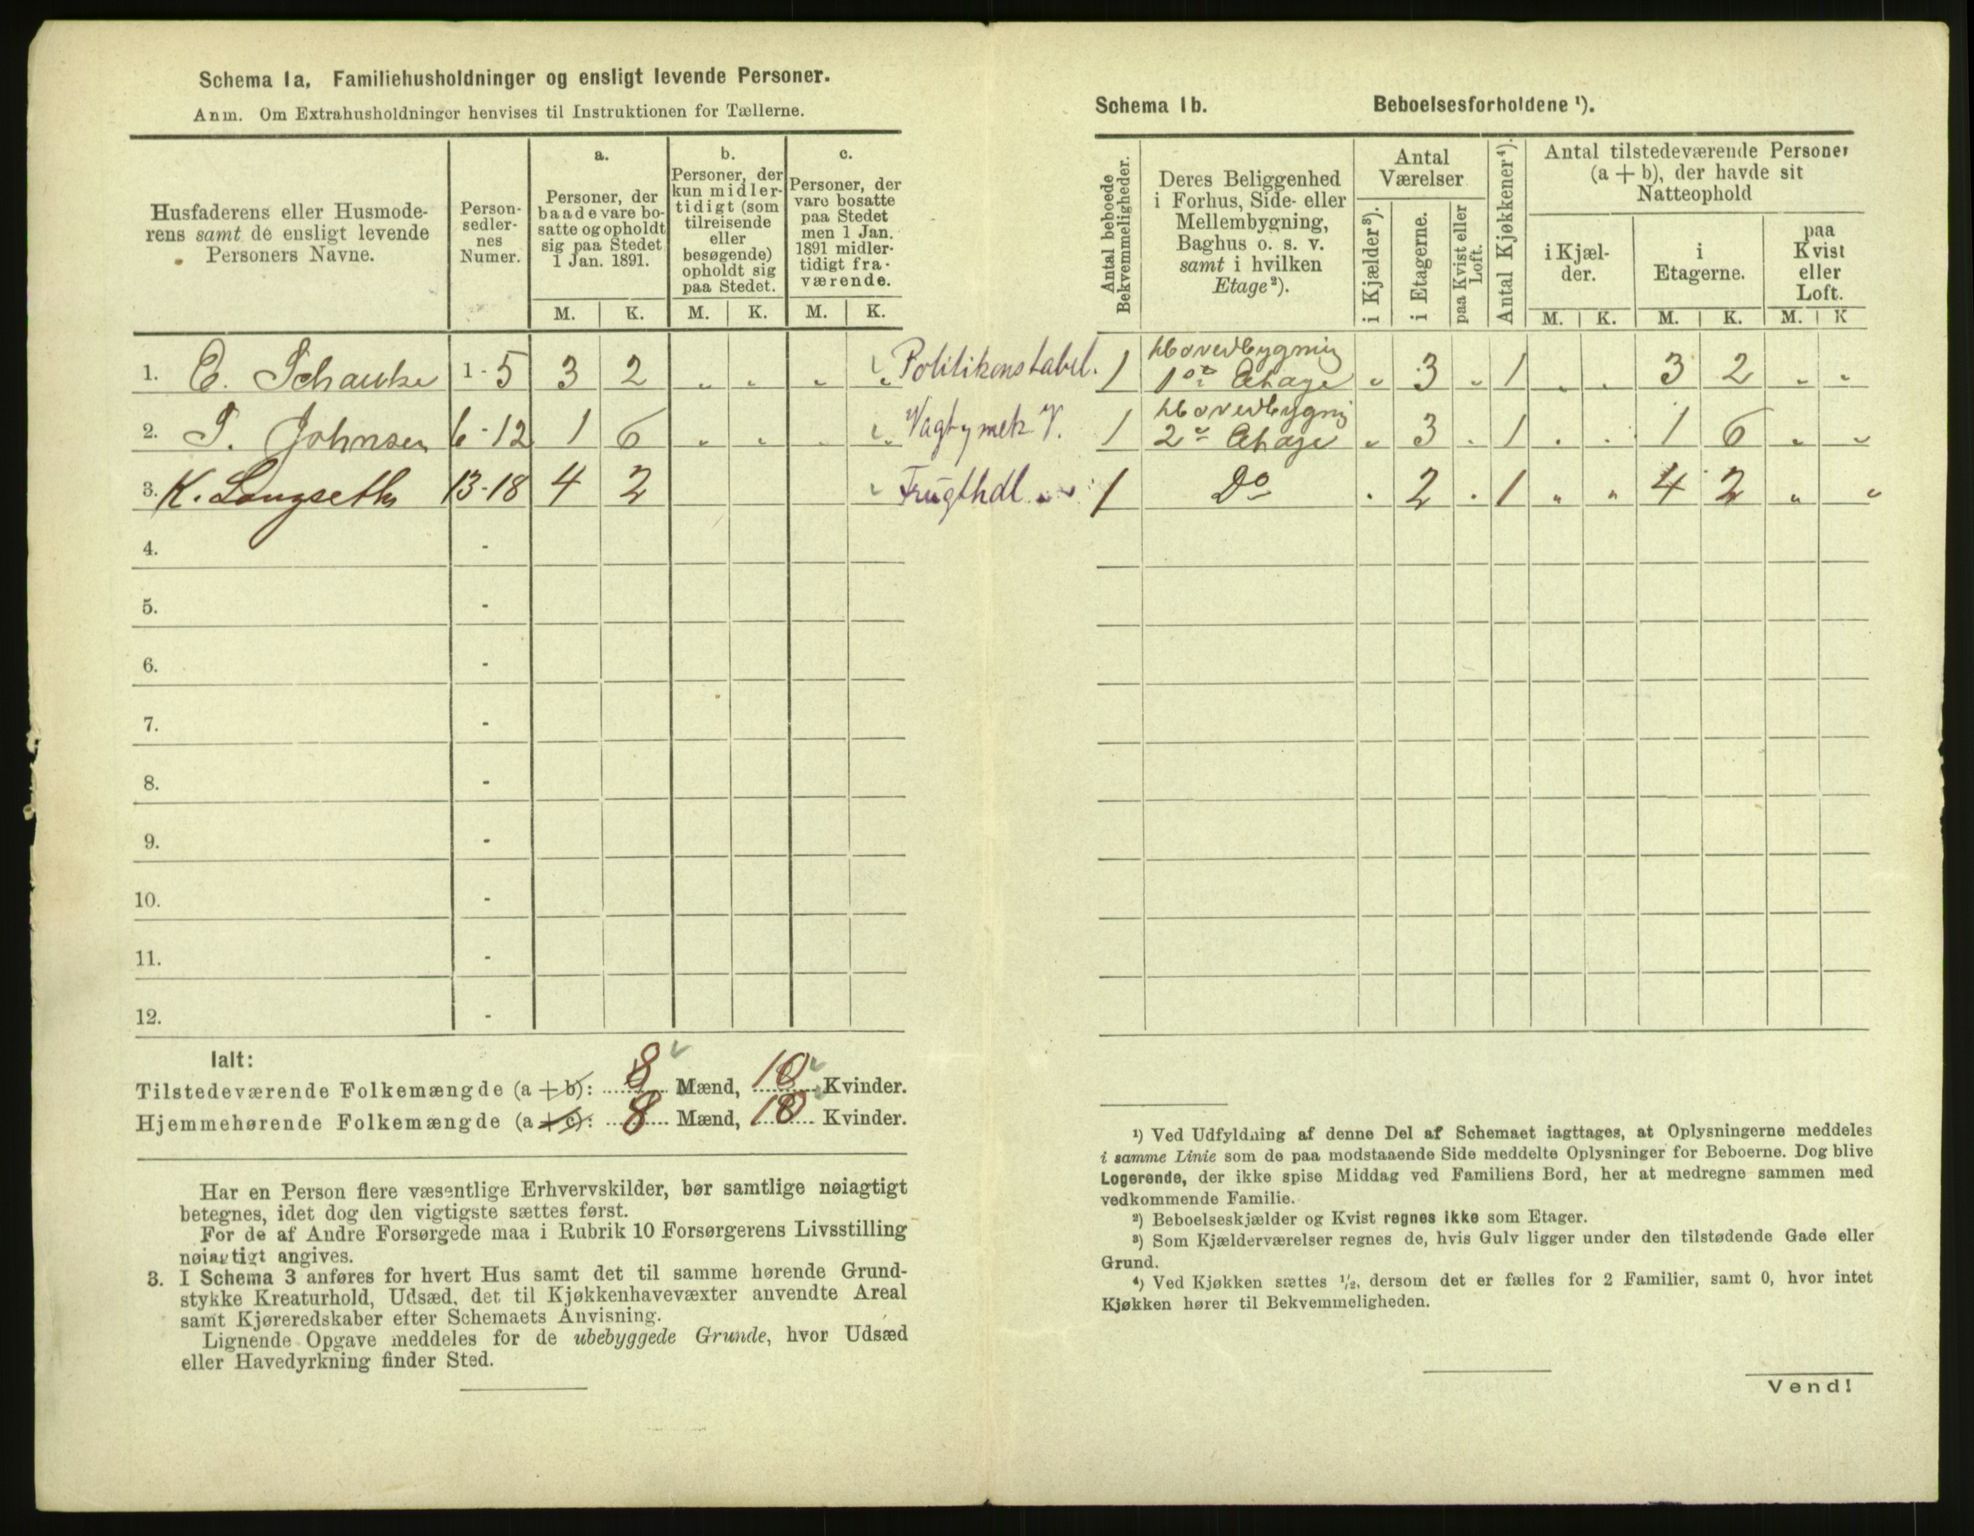 Schema 1a. Familiehusholdninger og ensligt levende Personer.
Anm. Om Extrahusholdninger henvises til Instruktionen for Tællerne.
Husfaderens eller Husmode-
rens samt de ensligt levende
Personers Navne.
Person-
sedler-
nes
Numer.
a.
Personer, der
baade vare bo-
satte og opholdt
sig paa Stedet
1 Jan. 1891.
b.
Personer, der
kun midler-
tidigt (som
tilreisende
eller
besøgende)
opholdt sig
paa Stedet.
c.
Personer, der
vare bosatte
paa Stedet
men 1 Jan.
1891 midler-
tidigt fra-
værende.
M. K. M. K. M. K.
1. E. Schauke 1-5 3 2 „ „ „ „ Politikonstabel.
2. T. Johnsen 6-12 1 6 „ „ „ „ Vagtymek V.
3. K. Langseth 13-18 4 2 Frugthdl
4. -
5. -
6. -
7. -
8. -
9. -
10. -
11. -
12. -
Ialt:
Tilstedeværende Folkemængde (a + b): 8 Mænd, 10 Kvinder.
Hjemmehørende Folkemængde (a + c): 8 Mænd, 10 Kvinder.
Har en Person flere væsentlige Erhvervskilder, bør samtlige nøiagtigt
betegnes, idet dog den vigtigste sættes først.
For de af Andre Forsørgede maa i Rubrik 10 Forsørgerens Livsstilling
nøiagtigt angives.
3. I Schema 3 anføres for hvert Hus samt det til samme hørende Grund-
stykke Kreaturhold, Udsæd, det til Kjøkkenhavevæxter anvendte Areal
samt Kjøreredskaber efter Schemaets Anvisning.
Lignende Opgave meddeles for de ubebyggede Grunde, hvor Udsæd
eller Havedyrkning finder Sted.
Schema 1b. Beboelsesforholdene ¹).
Antal beboede
Bekvemmeligheder.
Deres Beliggenhed
i Forhus, Side- eller
Mellembygning,
Baghus o. s. v.
samt i hvilken
Etage²).
Antal
Værelser
i Kjælder³).
i Etagerne.
paa Kvist eller
Loft.
Antal Kjøkkener⁴).
Antal tilstedeværende Personer
(a + b), der havde sit
Natteophold
i Kjæl-
der.
i
Etagerne.
paa
Kvist
eller
Loft.
M. K. M. K. M. K
1 Hovedbygning
1ste Etage „ 3 „ 1 „ „ 3 2 „ „
1 Hovedbygning
2n Etage „ 3 . 1 . . 1 6 „ „
1 Do . 2 . 1 „ „ 4 2 „ „
¹) Ved Udfyldning af denne Del af Schemaet iagttages, at Oplysningerne meddeles
i samme Linie som de paa modstaaende Side meddelte Oplysninger for Beboerne. Dog blive
Logerende, der ikke spise Middag ved Familiens Bord, her at medregne sammen med
vedkommende Familie.
²) Beboelseskjælder og Kvist regnes ikke som Etager.
³) Som Kjælderværelser regnes de, hvis Gulv ligger under den tilstødende Gade eller
Grund.
⁴) Ved Kjøkken sættes ½, dersom det er fælles for 2 Familier, samt 0, hvor intet
Kjøkken hører til Bekvemmeligheden.
Vend!